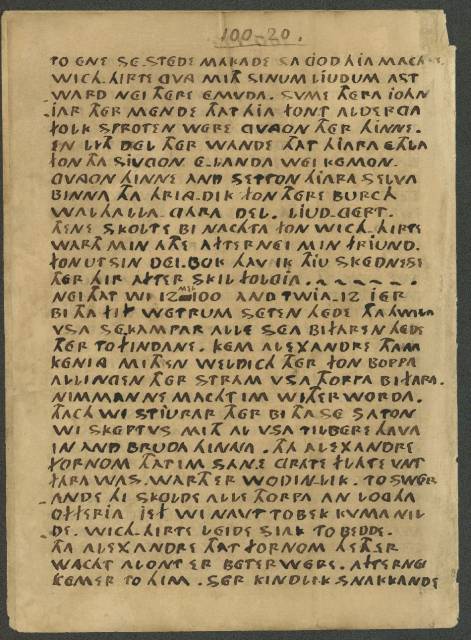 100-20.
TO ENE SE.STEDE MAKADE SA GOD HIA MACHTE.
WICH.HIRTE GVNG MITH SINUM LIUDUM AST
WARD NEI THERE EMUDA. SVME THERA IOHN
IAR THER MENDE THAT HIA FONT ALDERGA
FOLK SPROTEN WERE GVNGON THER HINNE.
EN LITH DEL THER WANDE THAT HIARA ETHLA
FON THA SIVGON E.LANDA WEI KEMON.
GVNGON HINNE AND SETTON HIARA SELVA
BINNA THA HRING.DIK FON THERE BURCH
WALHALLA.GARA DEL. LIUD.GERT.
THENE SKOLTE BI NACHTA FON WICH.HIRTE
WARTH MIN ATHE AFTERNEI MIN FRIUND.
FON UT SIN DEI.BOK HAV IK THIU SKEDNESE
THER HIR AFTER SKIL FOLGIA.
NEI THAT WI 12 MEL 100 AND TWIA.12 IER
BI THA FIF WETRUM SETEN HEDE THAHWILA
VSA SE.KAMPAR ALLE SEA BIFAREN HEDE
THER TO FINDANE. KEM ALEXANDRE THAM
KENING MITH EN WELDICH HER FON BOPPA
ALLINGEN THER STRAM VSA THORPA BIFARA.
NIMMAN NE MACHT IM WITHER WORDA.
THACH WI STIURAR THER BI THA SE SATON
WI SKEPT VS MITH AL VSA TILBERE HAVA
IN AND BRUDA HINNA. THA ALEXANDRE
FORNOM THAT IM SA NE GRATE FLATE VNT
FARA WAS. WARTH ER WODIN.LIK. TO SWER
ANDE HI SKOLDE ALLE THORPA AN LOGHA
OFFERIA IEF WI NAVT TO BEK KVMA NIL
DE. WICH.HIRTE LEIDE SIAK TO BEDDE.
THA ALEXANDRE THAT FORNOM HETH ER
WACHT ALONT ER BETER WERE. AFTERNEI
KEMER TO HIM. SER KINDLIK SNAKKANDE